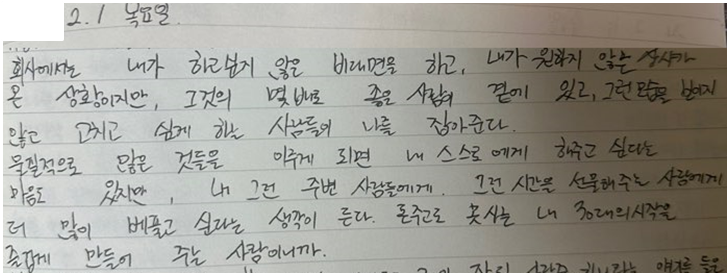 2.1 목요일.
회사에서는 내가 하고싶지 않은 비대면을 하고, 내가 원하지 않는
온 상황이지만, 그것의 몇배로 좋은 사람이 곁에 있고, 그런 모습을 보이지
않고 고치고 싶게 하는 사람들이 나를 잡아준다.
물질적으로 많은 것들을 이루게 되면 내 스스로에게 해주고 싶다는
마음도 있지만, 내 그런 주변 사람들에게. 그런 시간을 선물해주는 사람에게
더 많이 베풀고 싶다는 생각이 든다. 돈주고로 못사는 내 30대의시작을
즐겁게 만들어 주는 사람이니까.